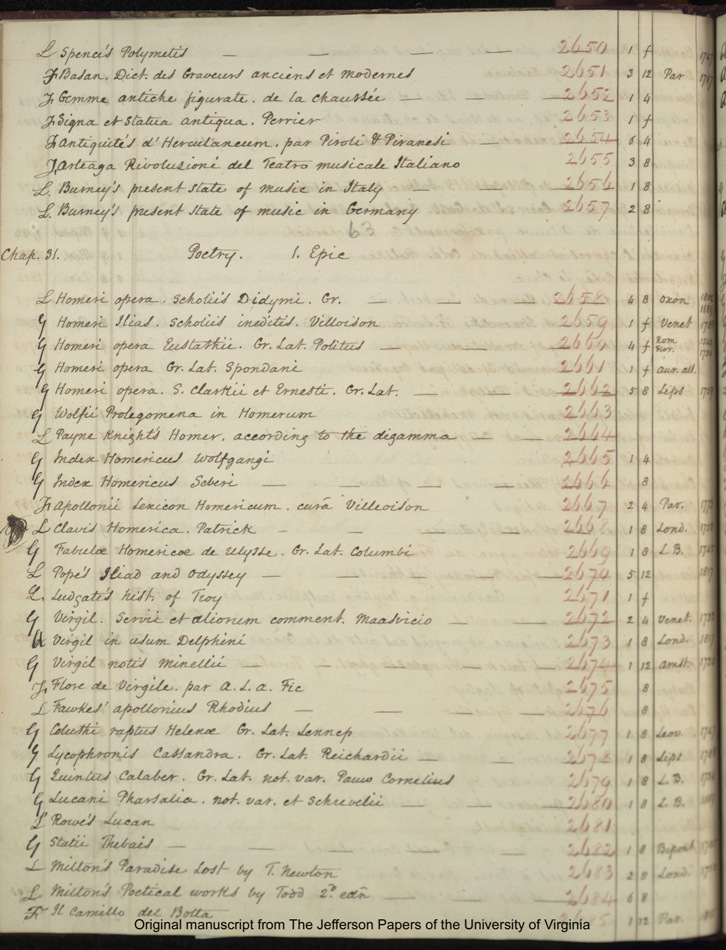 L Spence's Polymetis — — — — 2650 1 f
F Basan. Dict. des Graveurs anciens et modernes 2651 3 12 Par
F Gemme antiche figurate. de la chaussée — — 2652 1 4
F Signa et Statua antiqua. Perrier 2653 1 f
F Antiquités d'Herculaneum. par Piroli & Piranesi — 2654 6 4
F Arteaga Rivoluzioni del Teatro musicale Italiano 2655 3 8
L. Burney's present state of music in Italy — — 2656 1 8
L. Burney's present State of music in Germany 2657 2 8
63
Chap. 31. Poetry. 1. Epic
L Homeri opera. Scholiis Didymi. Gr. — — — 2658 4 8 Oxon
G Homeri Ilias. Scholiis ineditis. Villoison — — 2659 1 f Venet
G Homeri opera Eustathii. Gr. Lat. Politus — — — 2660 4 f Rom. Flor.
G Homeri opera Gr. Lat. Spondani 2661 1 f Aur. all.
G Homeri opera. S. Clarkii et Ernesti. Gr. Lat. — 2662 5 8 Lips
G Wolfii Prolegomena in Homerum 2663
L Payne Knight's Homer. according to the digamma — — 2664
G Index Homericus Wolfgangi 2665 1 4
G Index Homericus Seberi — — — — 2666 8
F Apollonii Lexicon Homericum. curâ Villoison 2667 2 4 Par.
L Clavis Homerica. Patrick — — — — 2668 1 8 Lond.
G Fabulæ Homericæ de Ulysse. Gr. Lat. Columbi 2669 1 8 L. B.
L Pope's Iliad and Odyssey — — — — 2670 5 12
L. Ludgate's hist. of Troy 2671 1 f
G Virgil. Servii et aliorum comment. Maasvicio — — 2672 2 4 Venet.
Virgil in usum Delphini 2673 1 8 Lond.
G Virgil notis Minellii — — — — 2674 1 12 Amst.
F Flore de Virgile. par A. L. a. Fee 2675 8
L Fawkes' Apollonius Rhodius — — — 2676 8
G Coluthi raptus Helenæ Gr. Lat. Lennep 2677 1 8 Leov
G Lycophronis Cassandra. Gr. Lat. Reichardii — — 2678 1 8 Lips
G Quintus Calaber. Gr. Lat. not. var. Pauw Cornelius 2679 1 8 L. B.
G Lucani Pharsalia. not. var. et Schrevelii — — 2680 1 8 L. B.
L Rowe's Lucan 2681
G Statii Thebais — — — — 2682 1 8 Bipont
L Milton's Paradise Lost by T. Newton 2683 2 8 Lond.
L Milton's Poetical works by Todd 2d. edn — — 2684 6 8
F Il Camillo del Botta 1 12 Par.
Original manuscript from The Jefferson Papers of the University of Virginia